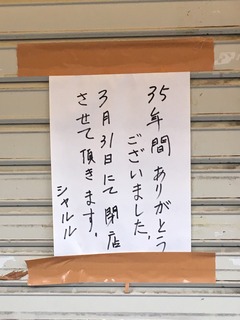 35年間ありがとう
ございました。
3月31日にて閉店
させて頂きます。
シャルル